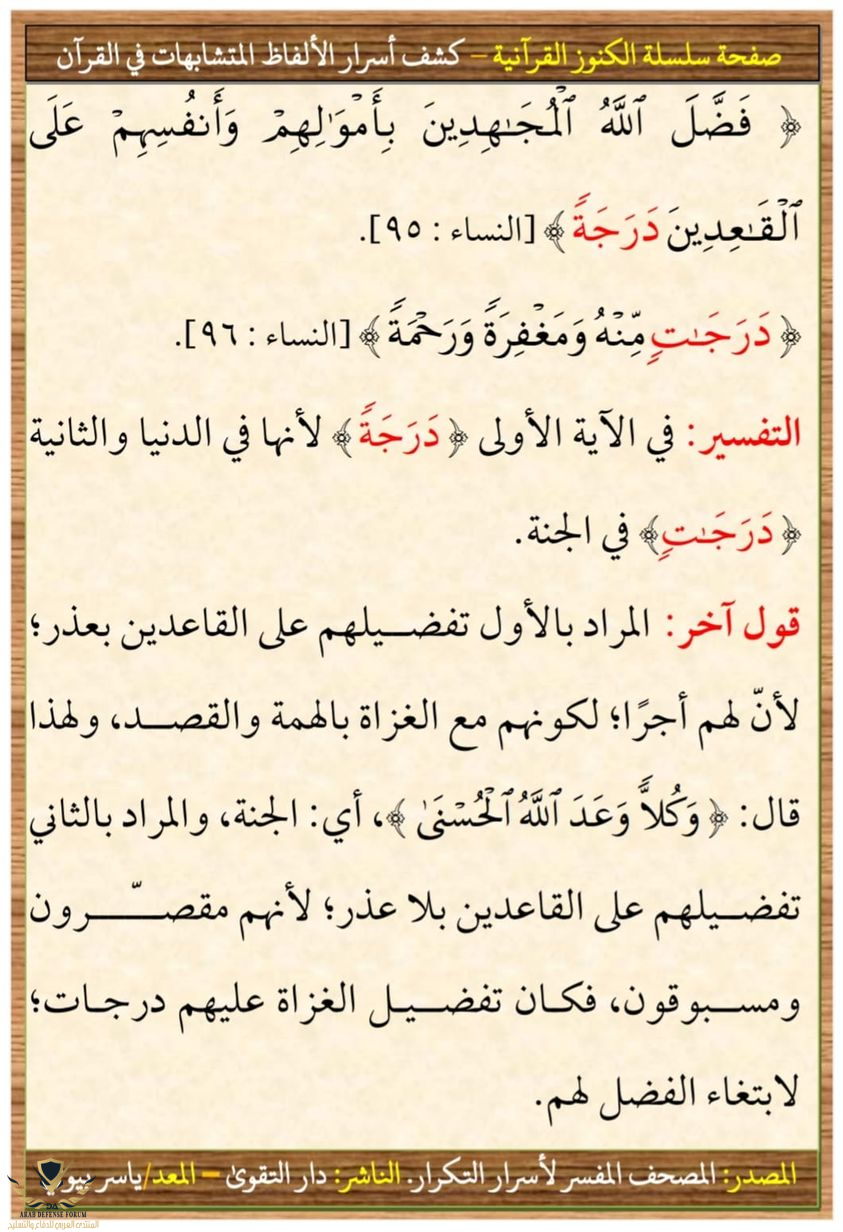 صفحة سلسلة الكنوز القرآنية – كشف أسرار الألفاظ المتشابهات في القرآن
﴿ فَضَّلَ ٱللَّهُ ٱلْمُجَـٰهِدِينَ بِأَمْوَٰلِهِمْ وَأَنفُسِهِمْ عَلَى
ٱلْقَـٰعِدِينَ دَرَجَةً ﴾ [النساء : ٩٥].
﴿ دَرَجَـٰتٍ مِّنْهُ وَمَغْفِرَةً وَرَحْمَةً ﴾ [النساء : ٩٦].
التفسير: في الآية الأولى ﴿ دَرَجَةً ﴾ لأنها في الدنيا والثانية
﴿ دَرَجَـٰتٍ ﴾ في الجنة.
قول آخر: المراد بالأول تفضيلهم على القاعدين بعذر؛
لأنّ لهم أجرًا؛ لكونهم مع الغزاة بالهمة والقصد، ولهذا
قال: ﴿ وَكُلاًّ وَعَدَ ٱللَّهُ ٱلْحُسْنَىٰ ﴾، أي: الجنة، والمراد بالثاني
تفضيلهم على القاعدين بلا عذر؛ لأنهم مقصّرون
ومسبوقون، فكان تفضيل الغزاة عليهم درجات؛
لابتغاء الفضل لهم.
المصدر: المصحف المفسر لأسرار التكرار. الناشر: دار التقوىٰ – المعد/ياسر بيومي
ARAB DEFENSE FORUM
المنتدى العربي للدفاع والتسليح